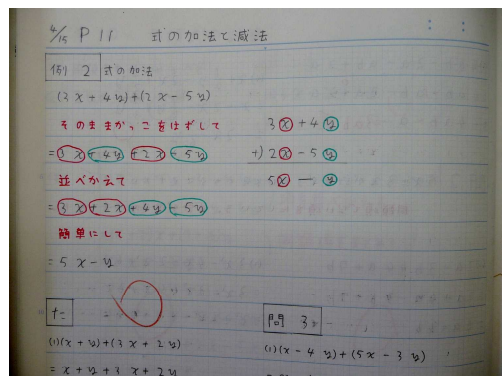 4/15 P 11 式の加法と減法
例 2 式の加法
(3x+4y)+(2x-5y)
そのままかっこをはずして
=3x+4y+2x-5y
並べかえて
=3x+2x+4y-5y
簡単にして
=5x-y
3x+4y
+) 2x-5y
5x-y
た
(1)(x+y)+(3x+2y)
=x+y+3x+2y
問 3
(1)(x-4y)+(5x-3y)